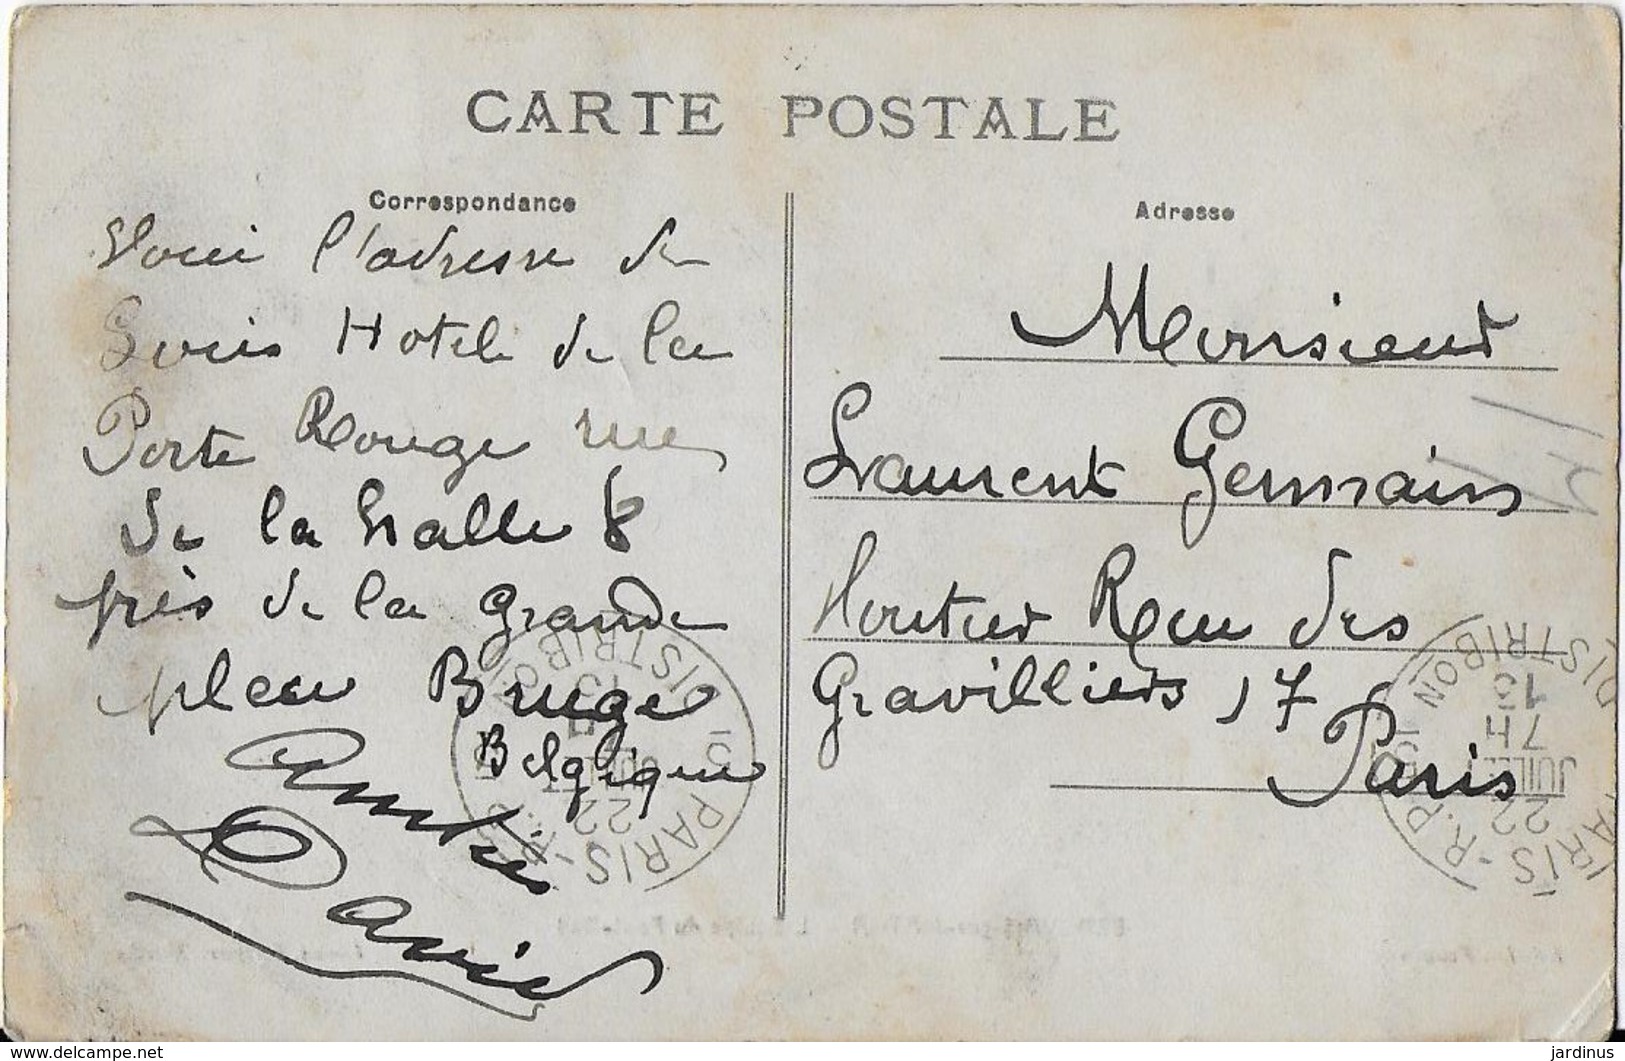 CARTE POSTALE
Correspondance
Voici l'adresse de
Louis Hotel de la
Porte Rouge rue
de la halle 8
près de la Grande
place Bruges
Belgique
Amitiés
David
Adresse
Monsieur
Laurent Germain
Routier Rue des
Gravilliers 17
Paris
PARIS - R.P.
DISTRIBON
13
7H
22 JUILLET
PARIS - R.P.
DISTRIBON
13
22 JUILLET
jardinus